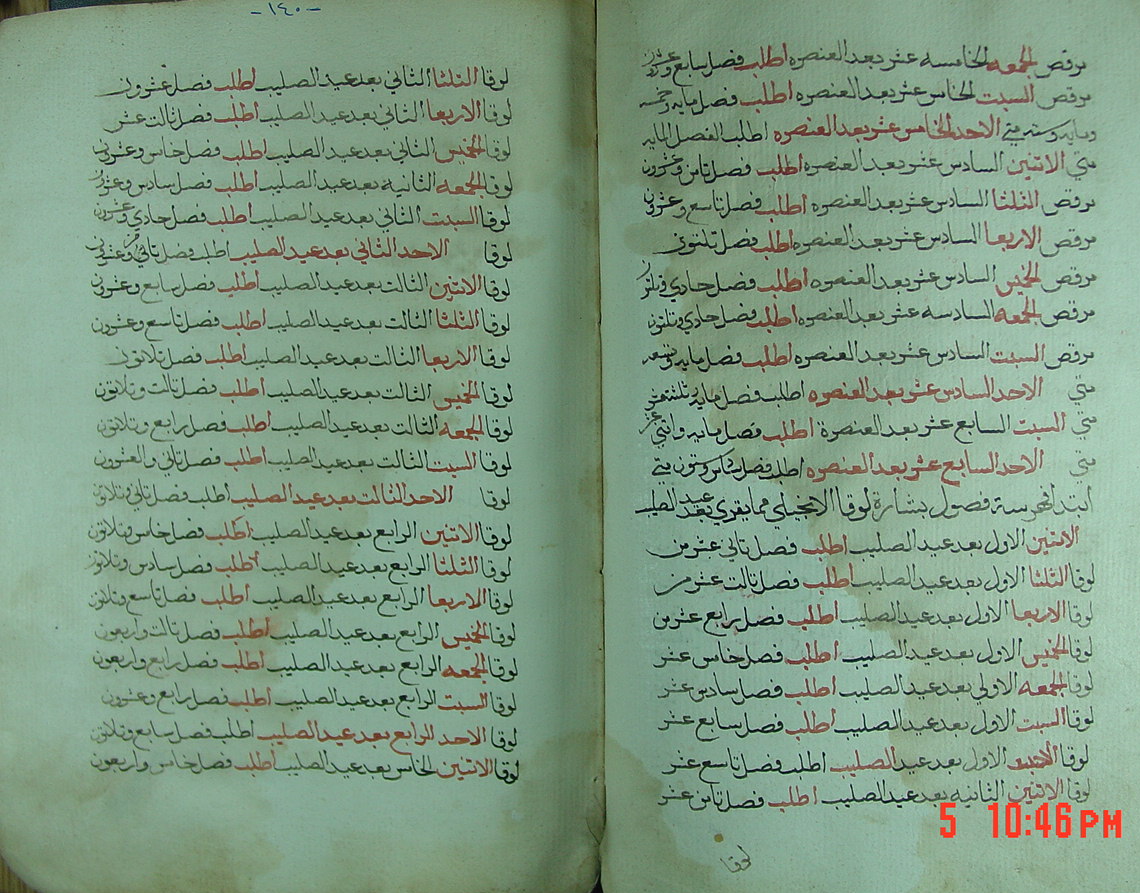 مرقص الجمعه الخامسه عشر بعد العنصره اطلب فصل سابع وعشرون
مرقص السبت الخامس عشر بعد العنصره اطلب فصل مايه وخمسه
ومايه وسته متي الاحد الخامس عشر بعد العنصره اطلب الفصل المايه
متي الاتنين السادس عشر بعد العنصره اطلب فصل تامن وعشرون
مرقص التلتا السادس عشر بعد العنصره اطلب فصل تاسع وعشرون
مرقص الاربعا السادس عشر بعد العنصره اطلب فصل تلتون
مرقص الخميس السادس عشر بعد العنصره اطلب فصل حادي وتلتون
مرقص الجمعه السادسه عشر بعد العنصره اطلب فصل حادي وتلتون
مرقص السبت السادس عشر بعد العنصره اطلب فصل مايه وتسعه
متي الاحد السادس عشر بعد العنصره اطلب فصل مايه
متي السبت السابع عشر بعد العنصرة اطلب فصل مايه واتني عشر
متي الاحد السابع عشر بعد العنصره اطلب فصل وستون متي
ابتدا فهرسة فصول بشارة لوقا الانجيلي مما يقري بعد عيد الصليب
الاتنين الاول بعد عيد الصليب اطلب فصل تاني عشر من
لوقا التلتا الاول بعد عيد الصليب اطلب فصل تالت عشر من
لوقا الاربعا الاول بعد عيد الصليب اطلب فصل رابع عشر من
لوقا الخميس الاول بعد عيد الصليب اطلب فصل خامس عشر
لوقا الجمعه الاولي بعد عيد الصليب اطلب فصل سادس عشر
لوقا السبت الاول بعد عيد الصليب اطلب فصل سابع عشر
لوقا الاحد الاول بعد عيد الصليب اطلب فصل تاسع عشر
لوقا الاتنين التانيه بعد عيد الصليب اطلب فصل تامن عشر
لوقا
-١٤٠-
لوقا التلتا التاني بعد عيد الصليب اطلب فصل عشرون
لوقا الاربعا التاني بعد عيد الصليب اطلب فصل تالت عشر
لوقا الخميس التاني بعد عيد الصليب اطلب فصل خامس وعشرون
لوقا الجمعه التانيه بعد عيد الصليب اطلب فصل سادس وعشرون
لوقا السبت التاني بعد عيد الصليب اطلب فصل حادي وعشرون
لوقا الاحد التاني بعد عيد الصليب اطلب فصل تاني وعشرون
لوقا الاتنين التالت بعد عيد الصليب اطلب فصل سابع وعشرون
لوقا التلتا التالت بعد عيد الصليب اطلب فصل تاسع وعشرون
لوقا الاربعا التالت بعد عيد الصليب اطلب فصل تلاتون
لوقا الخميس التالت بعد عيد الصليب اطلب فصل تالت وتلاتون
لوقا الجمعه التالت بعد عيد الصليب اطلب فصل رابع وتلاتون
لوقا السبت التالت بعد عيد الصليب اطلب فصل تاني والعشرون
لوقا الاحد التالت بعد عيد الصليب اطلب فصل تاني وتلاتون
لوقا الاتنين الرابع بعد عيد الصليب اطلب فصل خامس وتلاتون
لوقا التلتا الرابع بعد عيد الصليب اطلب فصل سادس وتلاتون
لوقا الاربعا الرابع بعد عيد الصليب اطلب فصل تاسع وتلاتون
لوقا الخميس الرابع بعد عيد الصليب اطلب فصل تالت واربعون
لوقا الجمعه الرابع بعد عيد الصليب اطلب فصل رابع واربعون
لوقا السبت الرابع بعد عيد الصليب اطلب فصل رابع وعشرون
لوقا الاحد الرابع بعد عيد الصليب اطلب فصل سابع وتلاتون
لوقا الاتنين الخامس بعد عيد الصليب اطلب فصل خامس واربعون
5 10:46 PM